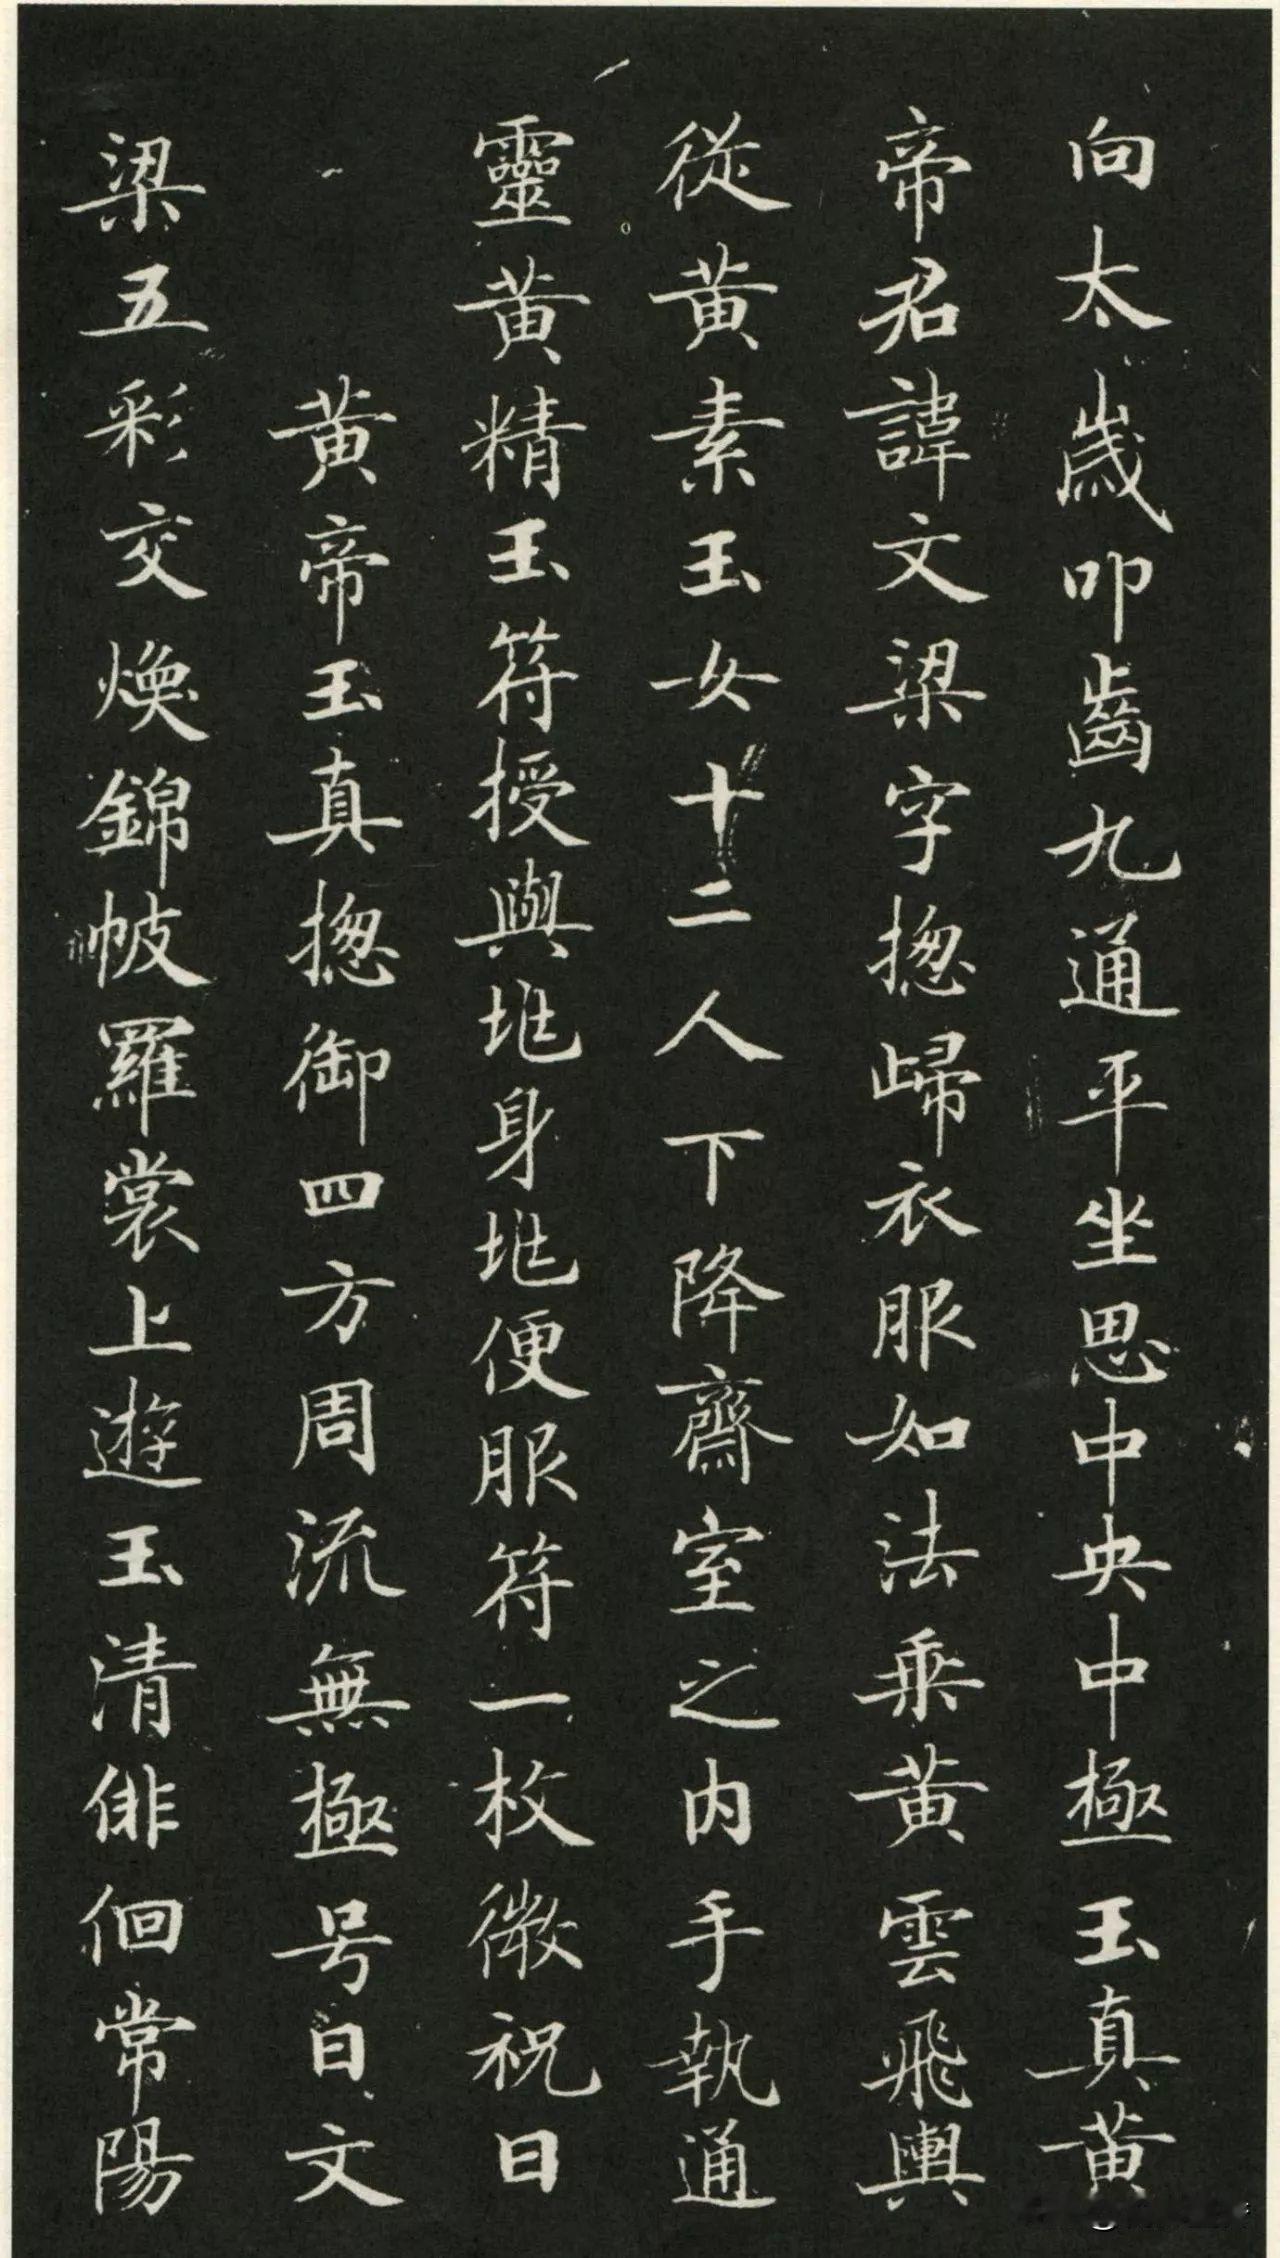 向太歲叩齒九通平坐思中央中極玉真黃
帝君諱文梁字揔歸衣服如法乘黃雲飛輿
從黃素玉女十二人下降齋室之內手執通
靈黃精玉符授與地身地便服符一枚微祝曰
黃帝玉真揔御四方周流無極号曰文
梁五彩交煥錦帔羅裳上遊玉清俳徊常陽